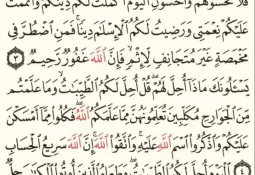 فلا تخشوهم واخشون اليوم أكملت لكم دينكم وأتممت
عليكم نعمتي ورضيت لكم الإسلام دينا فمن اضطر في
مخمصة غير متجانف لإثم فإن الله غفور رحيم ٣
يسئلونك ماذا أحل لهم قل أحل لكم الطيبات وما علمتم
من الجوارح مكلبين تعلمونهن مما علمكم الله فكلوا مما أمسكن
عليكم واذكروا اسم الله عليه واتقوا الله إن الله سريع الحساب
٤ اليوم أحل لكم الطيبات وطعام الذين أوتوا الكتاب حل